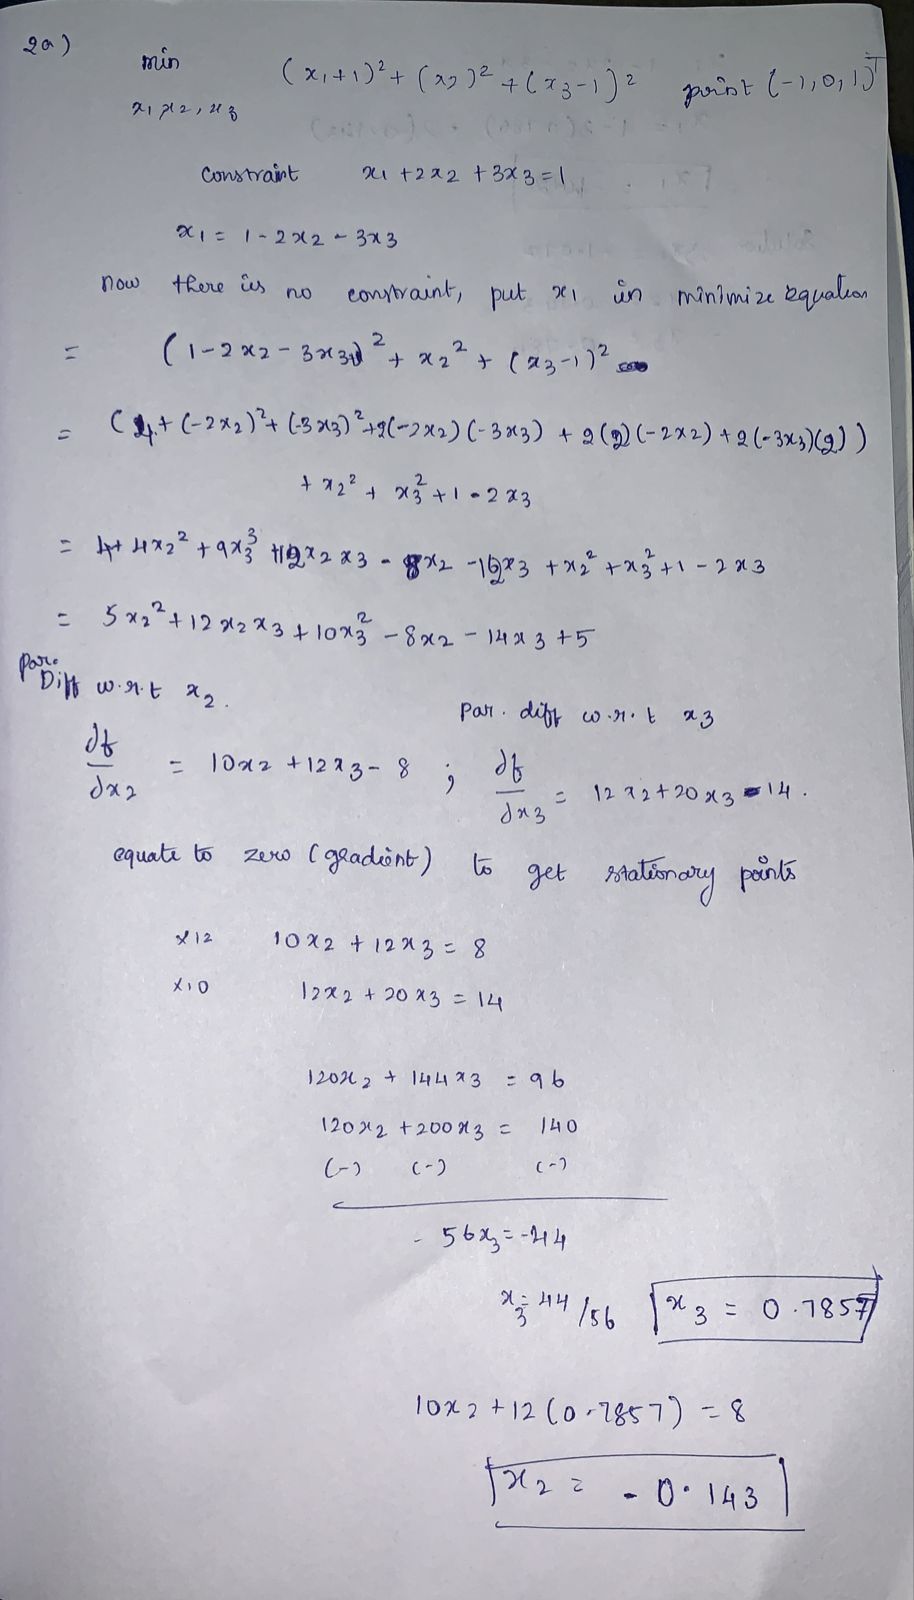 2a)
min (x₁+1)² + (x₂)² + (x₃-1)² point (-1,0,1)ᵀ
x₁ x₂, x₃
Constraint x₁ + 2x₂ + 3x₃ = 1
x₁ = 1 - 2x₂ - 3x₃
now there is no constraint, put x₁ in minimize equation
= (1-2x₂-3x₃+1)² + x₂² + (x₃-1)²
= (4 + (-2x₂)² + (-3x₃)² + 2(-2x₂)(-3x₃) + 2(2)(-2x₂) + 2(-3x₃)(2))
+ x₂² + x₃² + 1 - 2x₃
= 4 + 4x₂² + 9x₃³ + 12x₂x₃ - 8x₂ - 12x₃ + x₂² + x₃² + 1 - 2x₃
= 5x₂² + 12x₂x₃ + 10x₃² - 8x₂ - 14x₃ + 5
Par. Diff w.r.t x₂. par. diff w.r.t x₃
∂f/∂x₂ = 10x₂ + 12x₃ - 8 ; ∂f/∂x₃ = 12x₂ + 20x₃ - 14.
equate to zero (gradient) to get stationary points
x12 10x₂ + 12x₃ = 8
x10 12x₂ + 20x₃ = 14
120x₂ + 144x₃ = 96
120x₂ + 200x₃ = 140
(-) (-) (-)
- 56x₃ = -44
x₃ = 44/56 x₃ = 0.7857
10x₂ + 12(0.7857) = 8
x₂ = -0.143